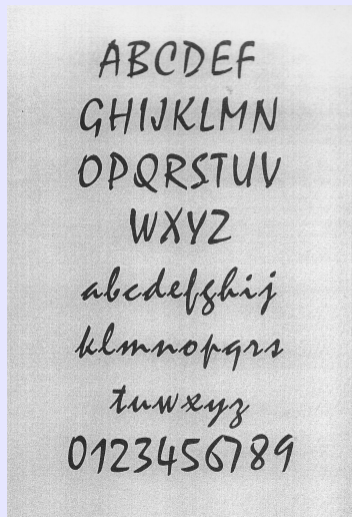 ABCDEF
GHIJKLMN
OPQRSTUV
WXYZ
abcdefghij
klmnopqrs
tuwxyz
0123456789